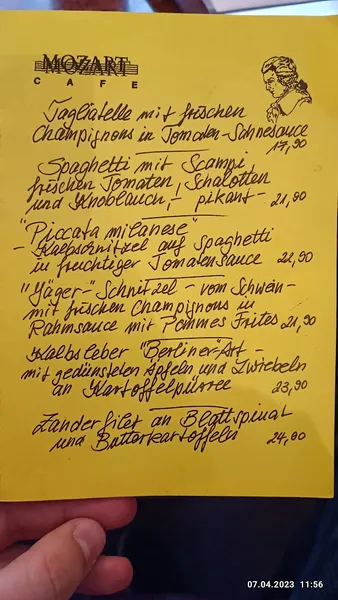 MOZART
CAFE
Tagliatelle mit frischen
Champignons in Tomaten-Sahnesauce
17,90
Spaghetti mit Scampi,
frischen Tomaten, Schalotten
und Knoblauch, - pikant - 21,90
"Piccata milanese"
- Kalbschnitzel auf Spaghetti
in fruchtiger Tomatensauce 22,90
"Jäger-" Schnitzel - vom Schwein -
mit frischen Champignons in
Rahmsauce mit Pommes Frites 21,90
Kalbsleber "Berliner" Art -
mit gedünsteten Äpfeln und Zwiebeln
an Kartoffelpüree 23,90
Zanderfilet an Blattspinat
und Butterkartoffeln 24,90
07.04.2023 11:56